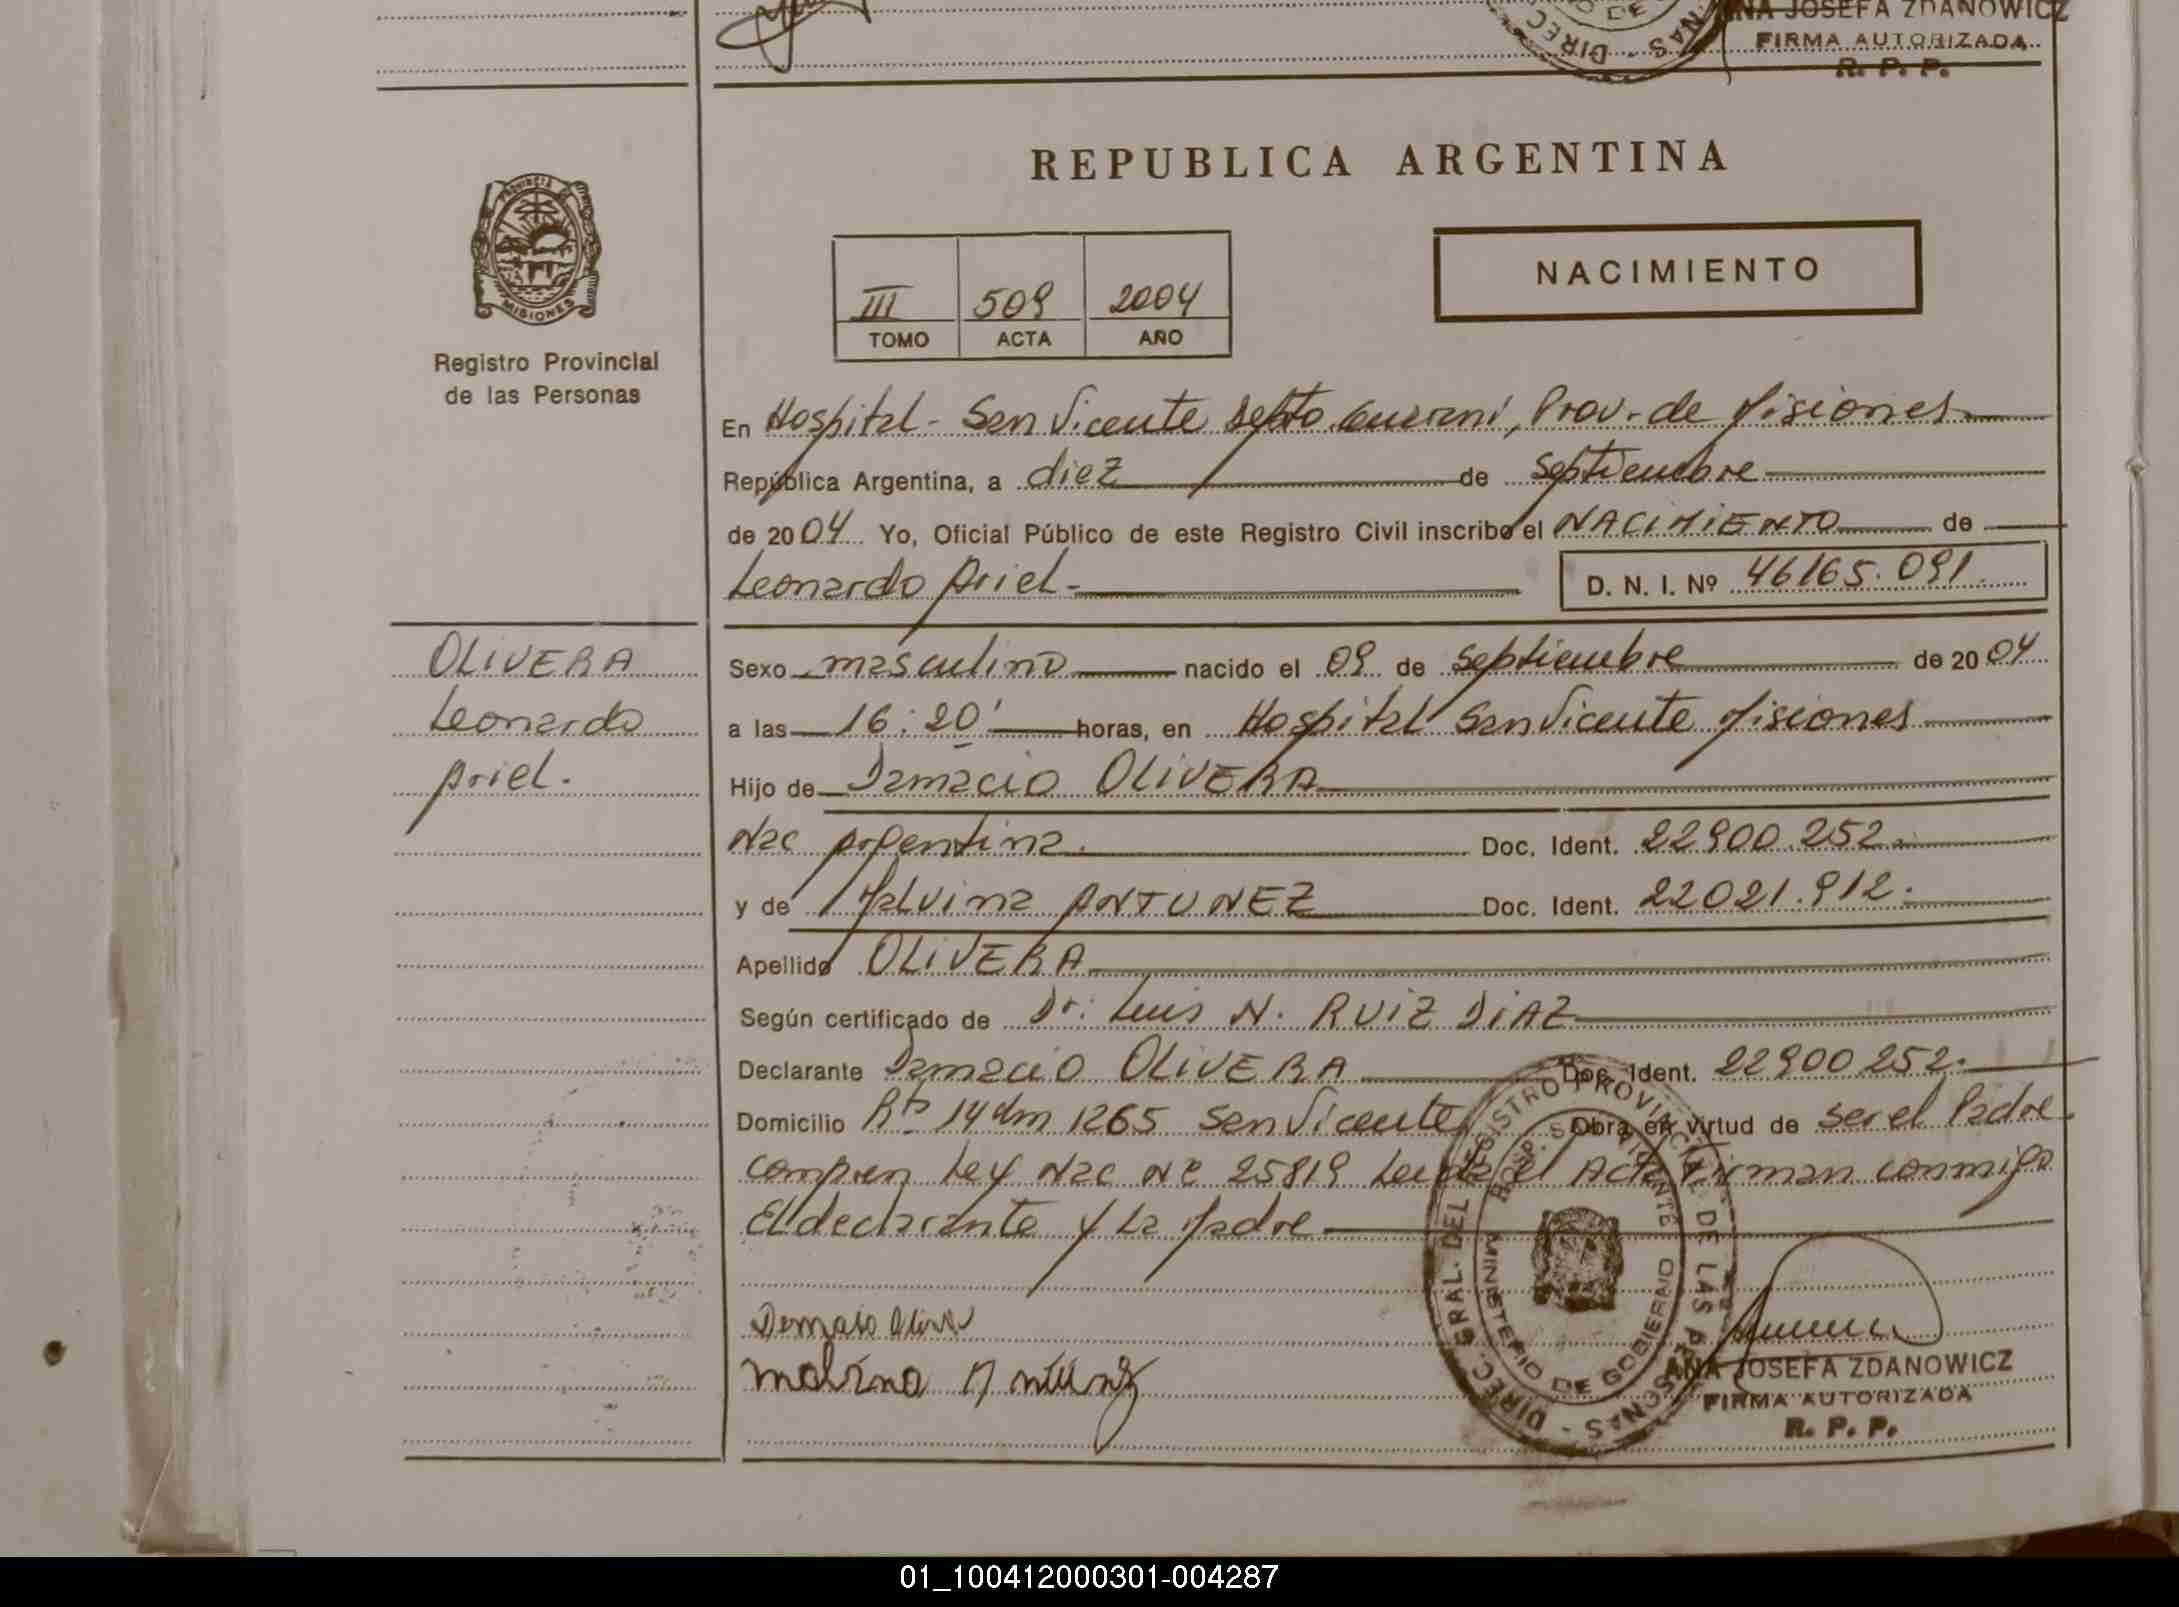 ANA JOSEFA ZDANOWICZ
FIRMA AUTORIZADA
R. P. P.
REPUBLICA ARGENTINA
PROVINCIA DE MISIONES
Registro Provincial
de las Personas
III 509 2004
TOMO ACTA AÑO
NACIMIENTO
En Hospital - San Vicente Depto Guarani, Prov. de Misiones
República Argentina, a diez de Septiembre
de 2004 Yo, Oficial Público de este Registro Civil inscribo el NACIMIENTO de
Leonardo Ariel - D. N. I. Nº 46165.091
OLIVERA
Leonardo
Ariel.
Sexo masculino nacido el 09 de Septiembre de 2004
a las 16:20' horas, en Hospital San Vicente Misiones
Hijo de Damacio OLIVERA
Nac Argentina. Doc. Ident. 22900.252.
y de Malvina ANTUNEZ Doc. Ident. 22021.912.
Apellido OLIVERA
Según certificado de Dr: Luis N. RUIZ DIAZ
Declarante Damacio OLIVERA Doc. Ident. 22900252.
Domicilio Rta 14 km 1265 San Vicente Obra en virtud de ser el Padre
Ley Nac Nº 25819 Leida el Acta Firman conmigo
El declarante y La Madre
Malvina Antunez
DIREC. GRAL. DEL REGISTRO PROVINCIAL DE LAS PERSONAS -
HOSP. SAN VICENTE
MINISTERIO DE GOBIERNO
ANA JOSEFA ZDANOWICZ
FIRMA AUTORIZADA
R. P. P.
01_100412000301-004287